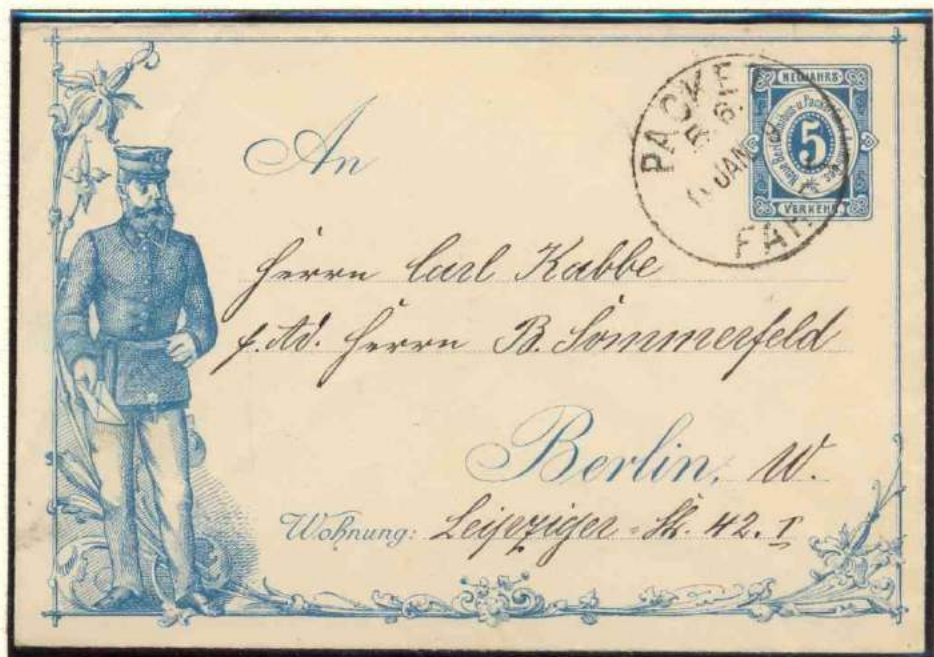 NEUJAHRS
5
VERKEHR
PACKET
FAHRT
JAN
An
Herrn Carl Kabbe
p. Ad. Herrn B. Sommerfeld
Berlin, W.
Wohnung: Leipziger-Str. 42. I